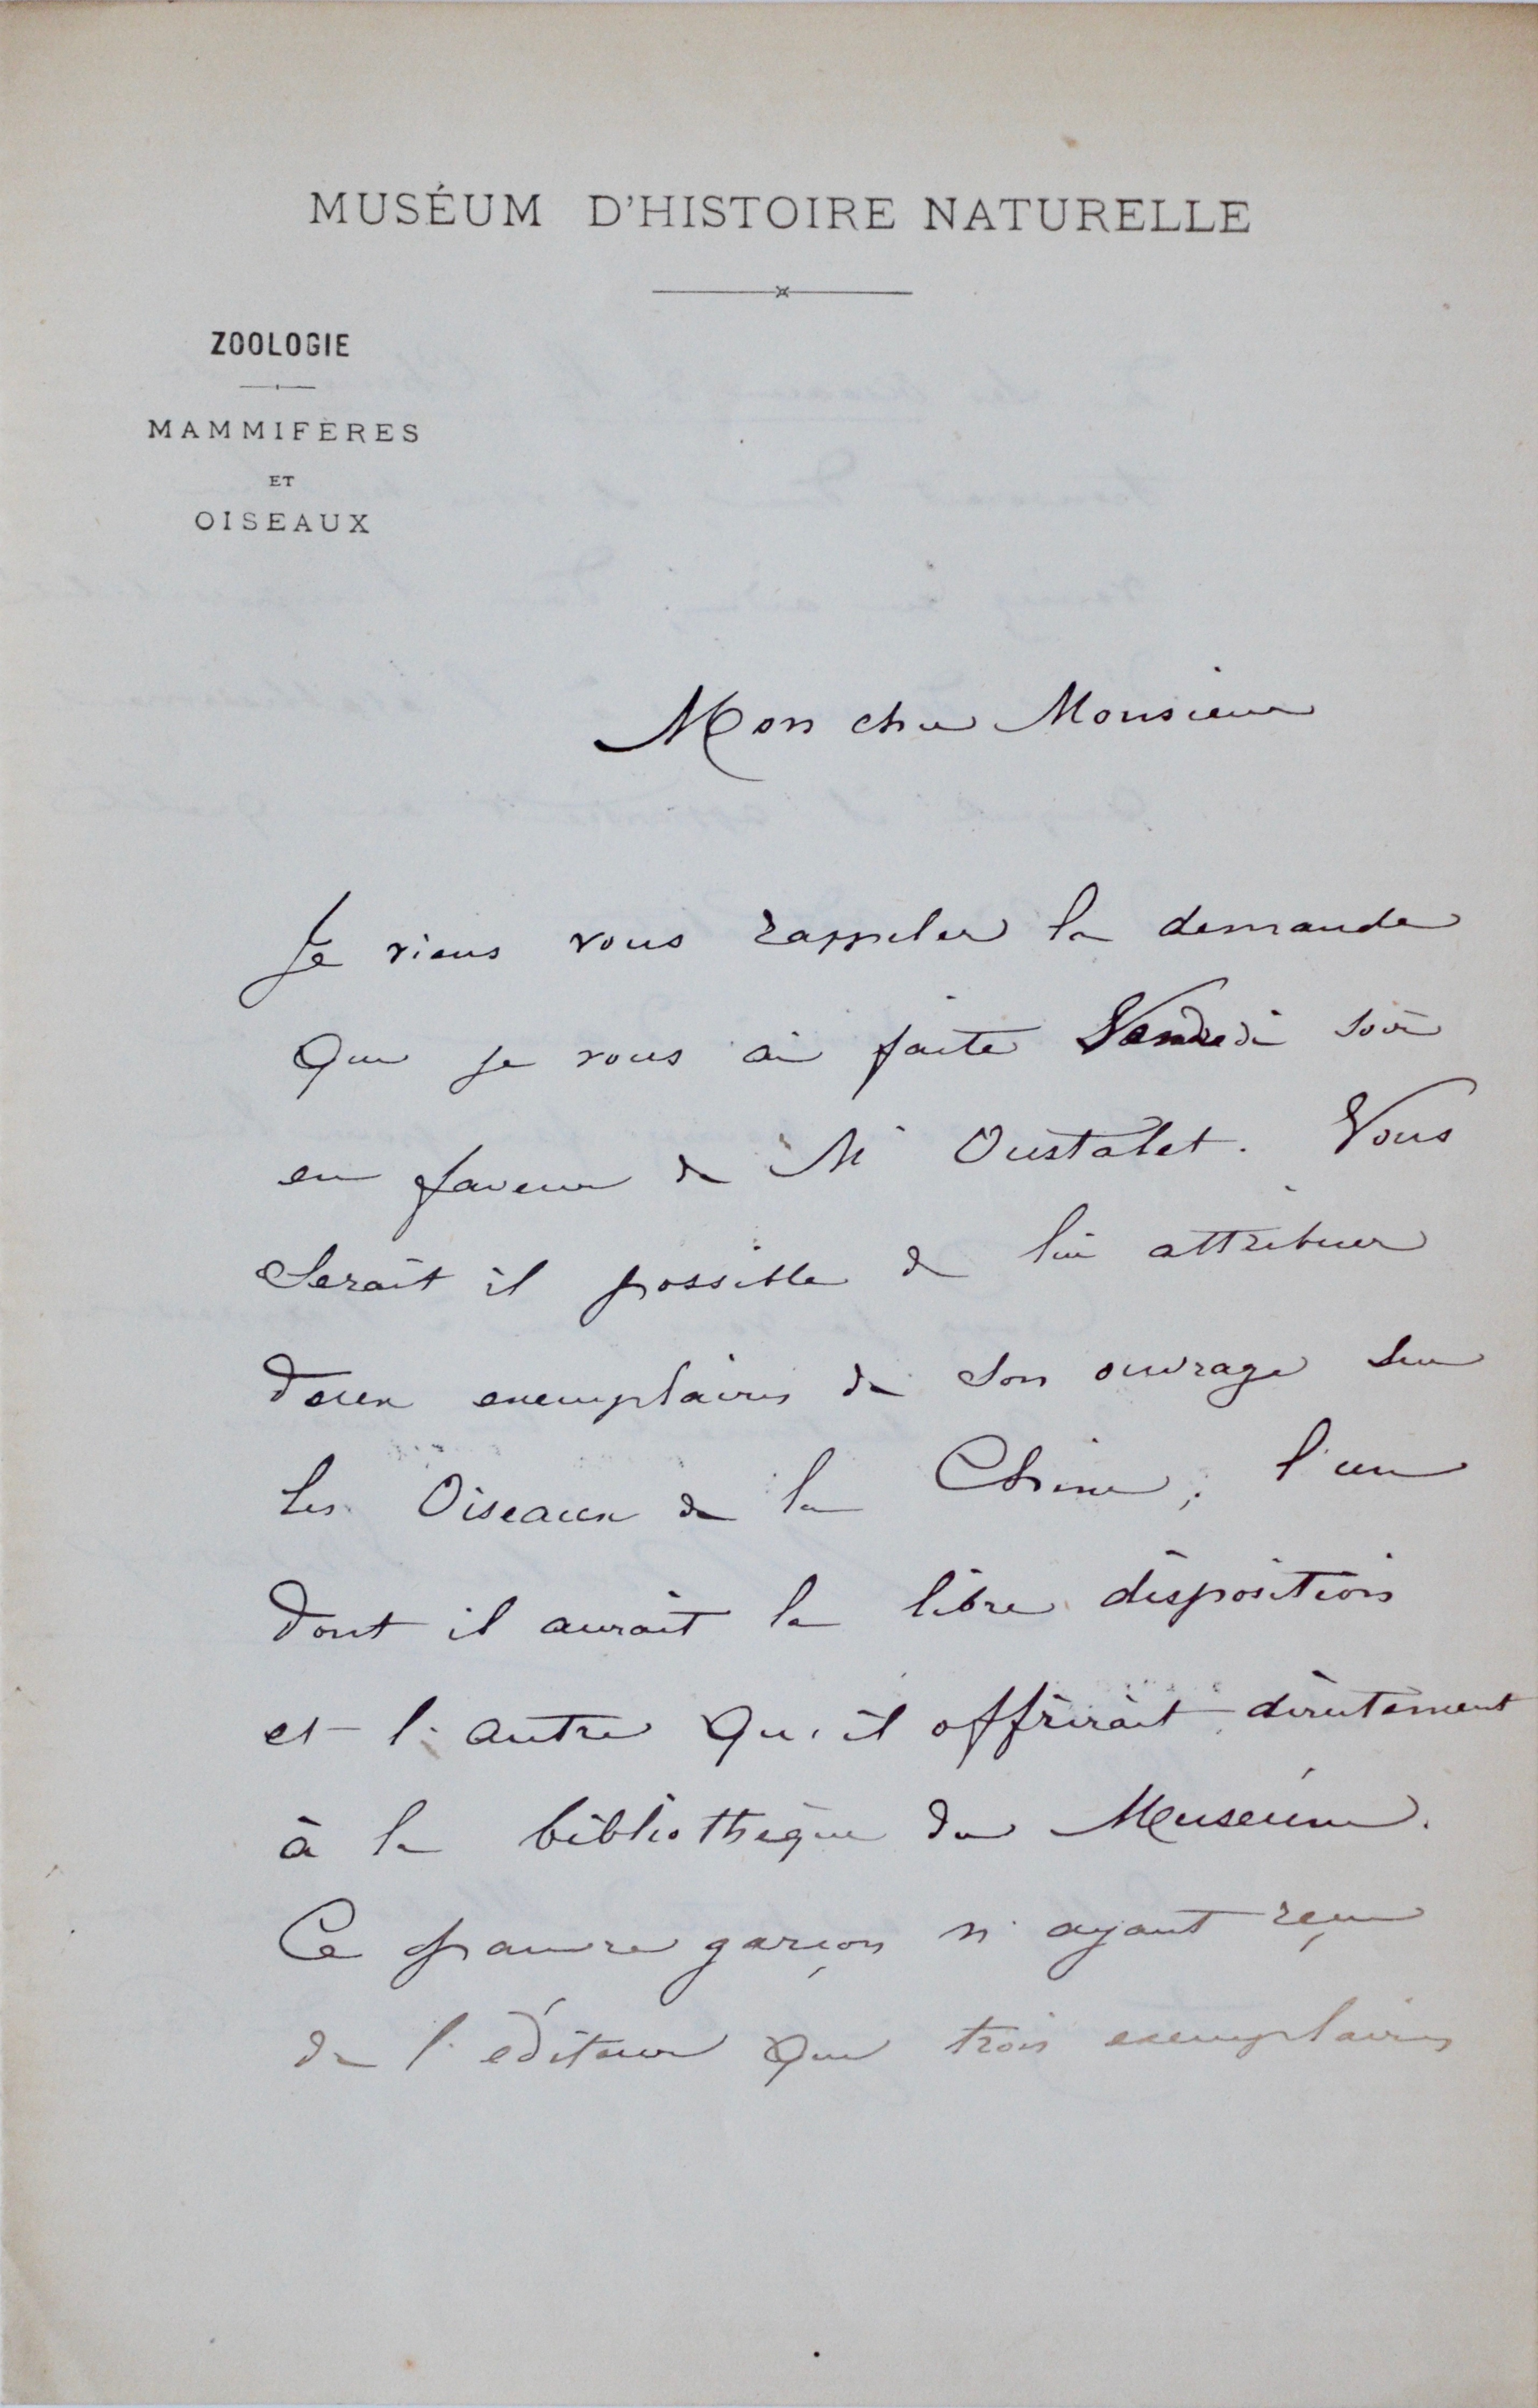 MUSÉUM D'HISTOIRE NATURELLE
ZOOLOGIE
MAMMIFÈRES
ET
OISEAUX
Mon cher Monsieur
Je viens vous rappeler la demande
que je vous ai faite Vendredi soir
en faveur de Mr Oustalet. Vous
serait il possible de lui attribuer
deux exemplaires de son ouvrage sur
les Oiseaux de la Chine, l'un
dont il aurait la libre disposition
et l'autre qu'il offrirait directement
à la bibliothèque du Muséum.
Ce pauvre garçon n'ayant reçu
de l'éditeur que trois exemplaires